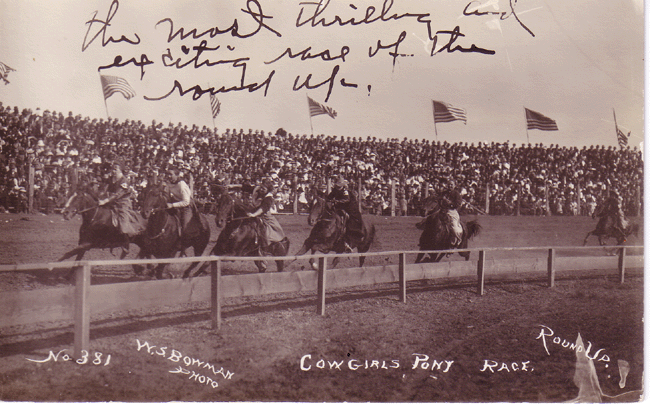 the most thrilling and
exciting race of the
round up.
No 381
W.S. BOWMAN
PHOTO
COWGIRLS PONY RACE.
ROUND UP.